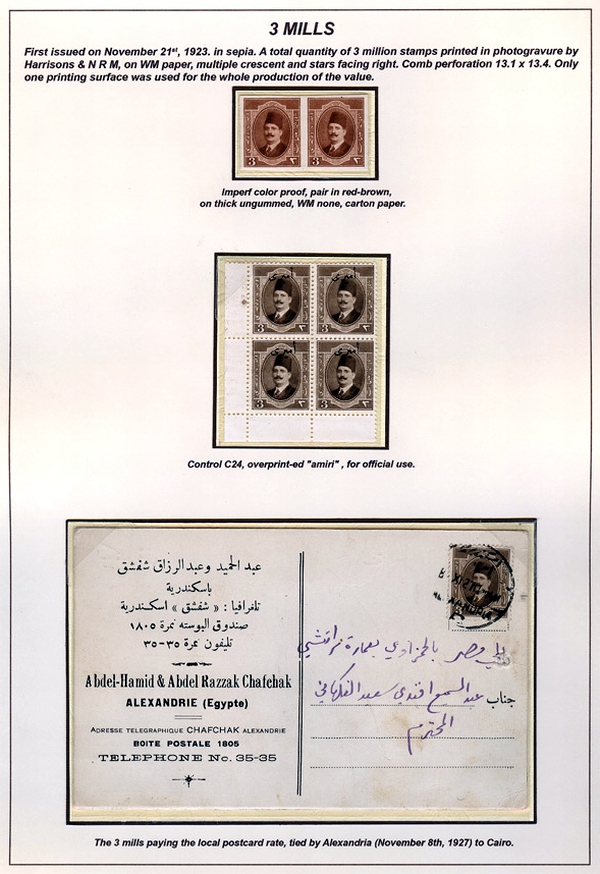 3 MILLS
First issued on November 21st, 1923. in sepia. A total quantity of 3 million stamps printed in photogravure by
Harrisons & N R M, on WM paper, multiple crescent and stars facing right. Comb perforation 13.1 x 13.4. Only
one printing surface was used for the whole production of the value.
3 ٣ 3 ٣
Imperf color proof, pair in red-brown,
on thick ungummed, WM none, carton paper.
أميرى أميرى
3 ٣ 3 ٣
أميرى أميرى
3 ٣ 3 ٣
Control C24, overprint-ed "amiri" , for official use.
عبد الحميد وعبد الرزاق شفشق
باسكندرية
تلغرافيا : « شفشق » اسكندرية
صندوق البوسته نمرة ١٨٠٥
تليفون نمرة ٣٥-٣٥
Abdel-Hamid & Abdel Razzak Chafchak
ALEXANDRIE (Egypte)
ADRESSE TELEGRAPHIQUE CHAFCHAK ALEXANDRIE
BOITE POSTALE 1805
TELEPHONE No. 35-35
مصر بالحمزاوي بعمارة
جناب عبد السميع افندي سعيد الفكهاني
المحترم
The 3 mills paying the local postcard rate, tied by Alexandria (November 8th, 1927) to Cairo.